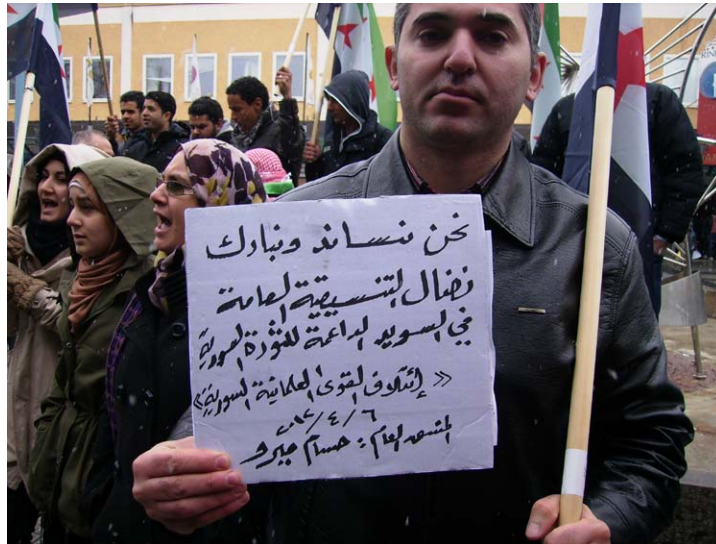 نحن نساند ونبارك
نضال التنسيقية العامة
في السويد الداعمة للثورة السورية
« إئتلاف القوى العلمانية السورية »
٢٠١٢/٤/٦
المنسق العام : حسام ميرو